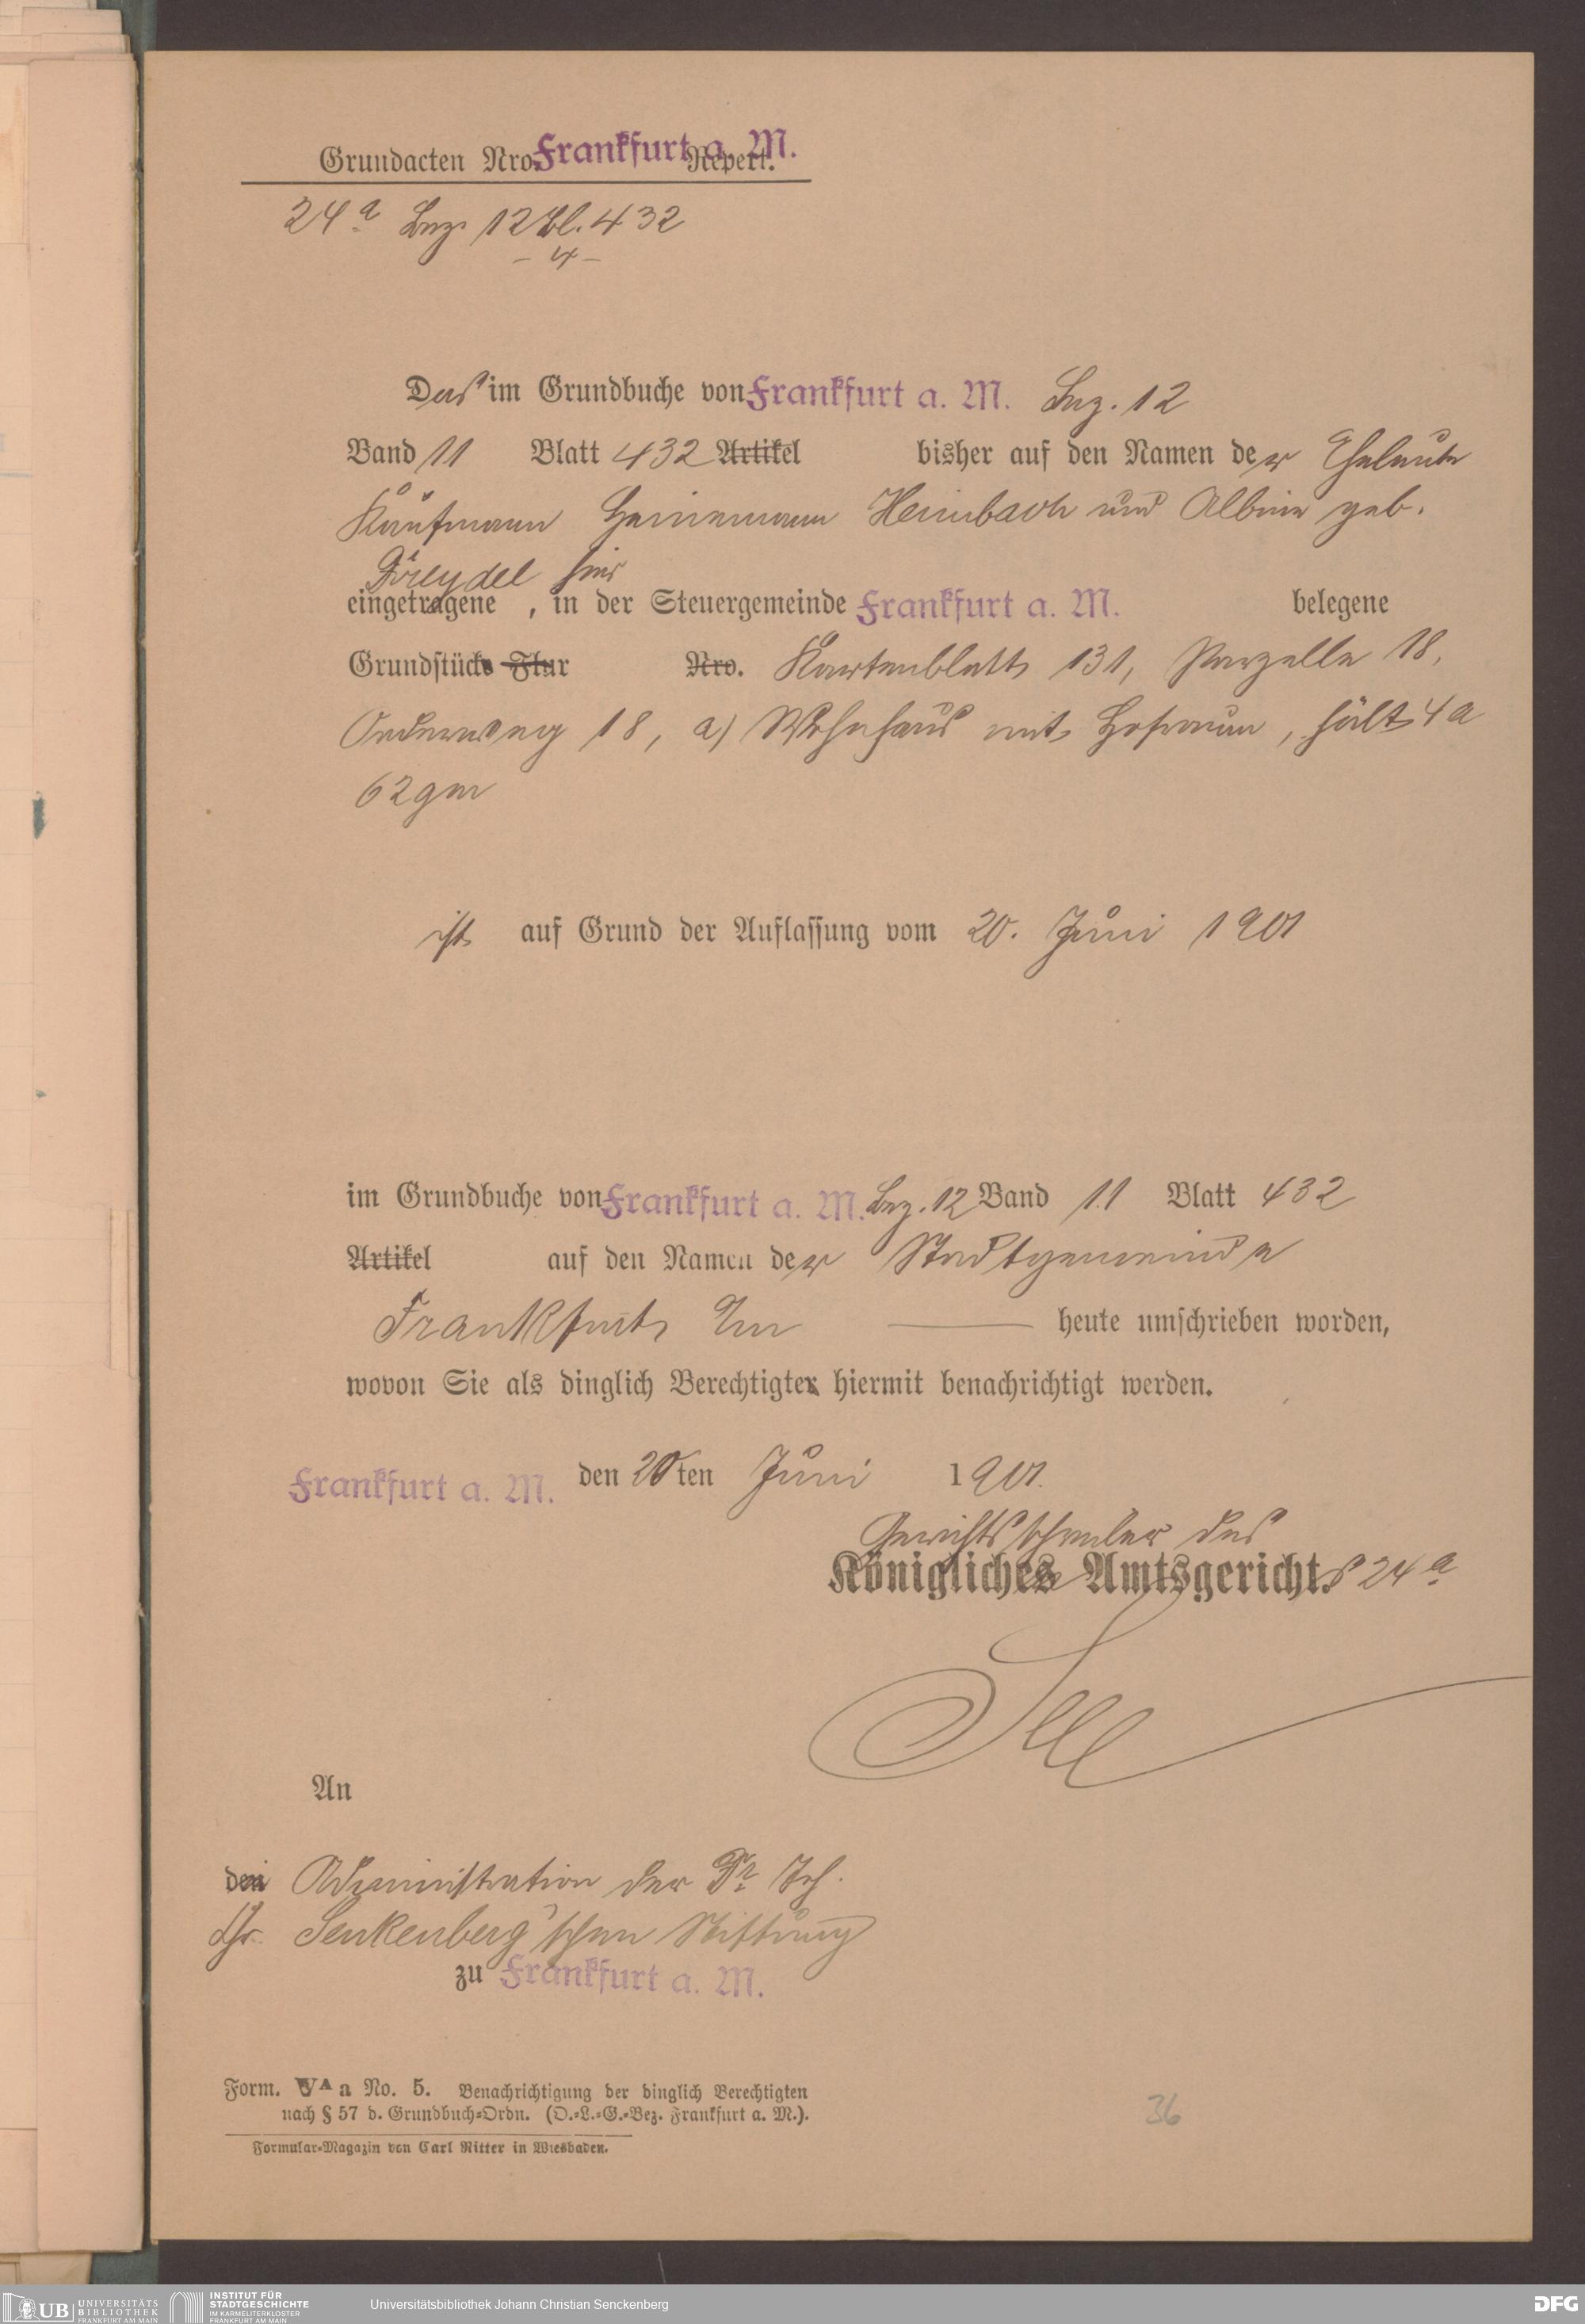 Grundacten Nro. Frankfurt a. M. Repert.
24a Bez. 12 Bl. 432
– 4 –
Das im Grundbuche von Frankfurt a. M. Bez. 12
Band 11 Blatt 432 Artikel bisher auf den Namen der Eheleute
Kaufmann Heinemann Heimbach und Albine geb.
hier
eingetragene , in der Steuergemeinde Frankfurt a. M. belegene
Grundstück Flur Nro. Kartenblatt 131, Parzelle 18,
Oederweg 18, a) Wohnhaus mit Hofraum, hält 4 a
62 qm
ist auf Grund der Auflassung vom 20. Juni 1901
im Grundbuche von Frankfurt a. M. Bez. 12 Band 11 Blatt 432
Artikel auf den Namen der Stadtgemeinde
Frankfurt a/m heute umschrieben worden,
wovon Sie als dinglich Berechtigte hiermit benachrichtigt werden.
Frankfurt a. M. den 20ten Juni 1901.
Gerichtsschreiber des
Königlichen Amtsgerichts 24a
An
die Administration der Dr. Joh.
Chr. Senkenberg'schen Stiftung
zu Frankfurt a. M.
Form. VA a No. 5. Benachrichtigung der dinglich Berechtigten
nach § 57 d. Grundbuch-Ordn. (O.-L.-G.-Bez. Frankfurt a. M.).
Formular-Magazin von Carl Ritter in Wiesbaden.
36
UB UNIVERSITÄTS BIBLIOTHEK FRANKFURT AM MAIN
INSTITUT FÜR STADTGESCHICHTE IM KARMELITERKLOSTER FRANKFURT AM MAIN
Universitätsbibliothek Johann Christian Senckenberg
DFG